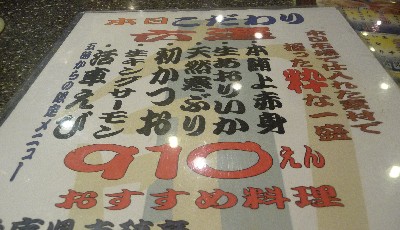 本日こだわり
六選
本日市場で仕入れた食材で
握った粋な一盛
・本鮪上赤身
・生あおりいか
・天然寒ぶり
・初かつお
・生キングサーモン
・活車えび
石韻からの限定メニュー
910えん
おすすめ料理